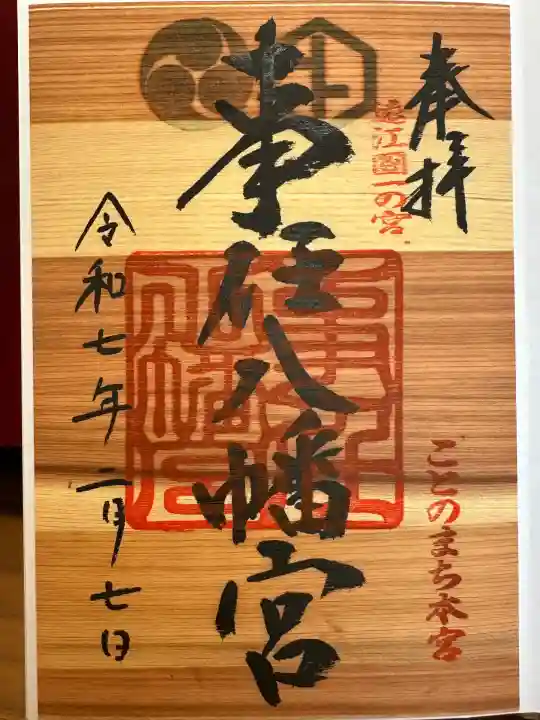 奉拝
遠江國一の宮
ことのまち本宮
事任八幡宮
令和七年二月七日